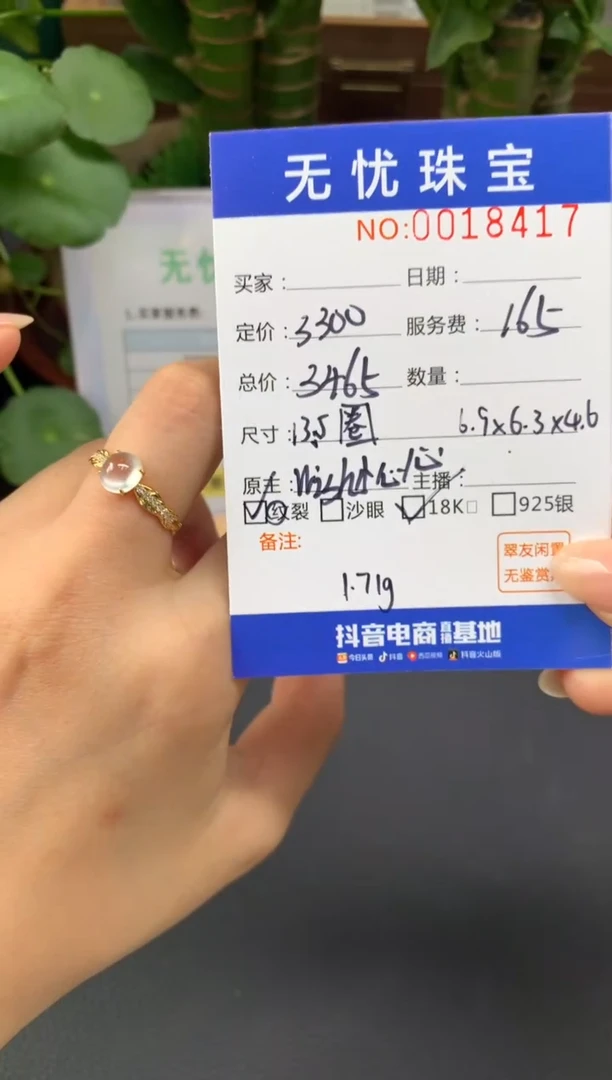 无忧珠宝
NO:0018417
买家： 日期：
定价：3300 服务费：165
总价：3465 数量：
尺寸：13.5圈 6.9x6.3x4.6
原主： 主播：
纹裂 沙眼 18K 925银
备注：
翠友闲置
无鉴赏
1.71g
抖音电商直播基地
今日头条 抖音 西瓜视频 抖音火山版
无忧